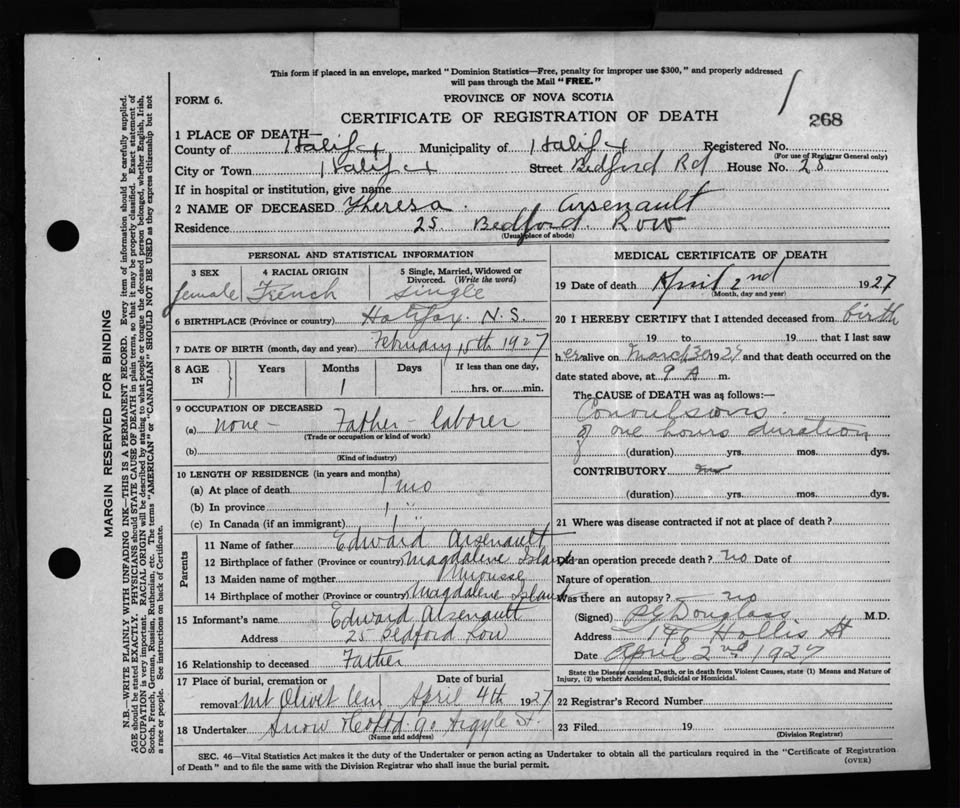 This form if placed in an envelope, marked "Dominion Statistics—Free, penalty for improper use $300," and properly addressed
will pass through the Mail "FREE."
FORM 6.
PROVINCE OF NOVA SCOTIA
CERTIFICATE OF REGISTRATION OF DEATH
268
1 PLACE OF DEATH—
County of Halifax Municipality of Halifax Registered No.
(For use of Registrar General only)
City or Town Halifax Street Bedford Rd House No. 25
If in hospital or institution, give name
2 NAME OF DECEASED Theresa Arsenault
Residence 25 Bedford Row
(Usual place of abode)
PERSONAL AND STATISTICAL INFORMATION
3 SEX 4 RACIAL ORIGIN 5 Single, Married, Widowed or Divorced. (Write the word)
female French single
6 BIRTHPLACE (Province or country) Halifax N.S.
7 DATE OF BIRTH (month, day and year) February 15th 1927
8 AGE IN Years Months Days If less than one day,
1 hrs. or min.
9 OCCUPATION OF DECEASED
(a) none - Father - laborer
(Trade or occupation or kind of work)
(b)
(Kind of industry)
10 LENGTH OF RESIDENCE (in years and months)
(a) At place of death 1 mo
(b) In province 1 "
(c) In Canada (if an immigrant) 1 "
Parents
11 Name of father Edward Arsenault
12 Birthplace of father (Province or country) Magdalene Island
13 Maiden name of mother
14 Birthplace of mother (Province or country) Magdalene Island
15 Informant's name Edward Arsenault
Address 25 Bedford Row
16 Relationship to deceased Father
17 Place of burial, cremation or removal Date of burial
Mt Olivet Cem April 4th 1927
18 Undertaker Snow & Co Ltd 90 Argyle St.
(Name and address)
MEDICAL CERTIFICATE OF DEATH
19 Date of death April 2nd 1927
(Month, day and year)
20 I HEREBY CERTIFY that I attended deceased from birth
19 to 19 that I last saw
her alive on March 30 1927 and that death occurred on the
date stated above, at 9 A m.
The CAUSE of DEATH was as follows:—
Convulsions.
of one hours duration
(duration) yrs. mos. dys.
CONTRIBUTORY
(duration) yrs. mos. dys.
21 Where was disease contracted if not at place of death?
Did an operation precede death? no Date of
Nature of operation
Was there an autopsy? no
(Signed) Douglass M.D.
Address 196 Hollis St
Date April 2nd 1927
State the Disease causing Death, or in death from Violent Causes, state (1) Means and Nature of
Injury, (2) whether Accidental, Suicidal or Homicidal.
22 Registrar's Record Number
23 Filed 19
(Division Registrar)
SEC. 46—Vital Statistics Act makes it the duty of the Undertaker or person acting as Undertaker to obtain all the particulars required in the "Certificate of Registration
of Death" and to file the same with the Division Registrar who shall issue the burial permit.
(OVER)
MARGIN RESERVED FOR BINDING
N.B.—WRITE PLAINLY WITH UNFADING INK—THIS IS A PERMANENT RECORD. Every item of information should be carefully supplied.
AGE should be stated EXACTLY. PHYSICIANS should STATE CAUSE OF DEATH in plain terms, so that it may be properly classified. Exact statement of
OCCUPATION is very important. RACIAL ORIGIN will be described by stating to what people or tongue the deceased person belonged, whether English, Irish,
Scotch, French, German, Russian, Ruthenian, etc. The terms "AMERICAN" or "CANADIAN" SHOULD NOT BE USED as they express citizenship but not
a race or people. See instructions on back of Certificate.